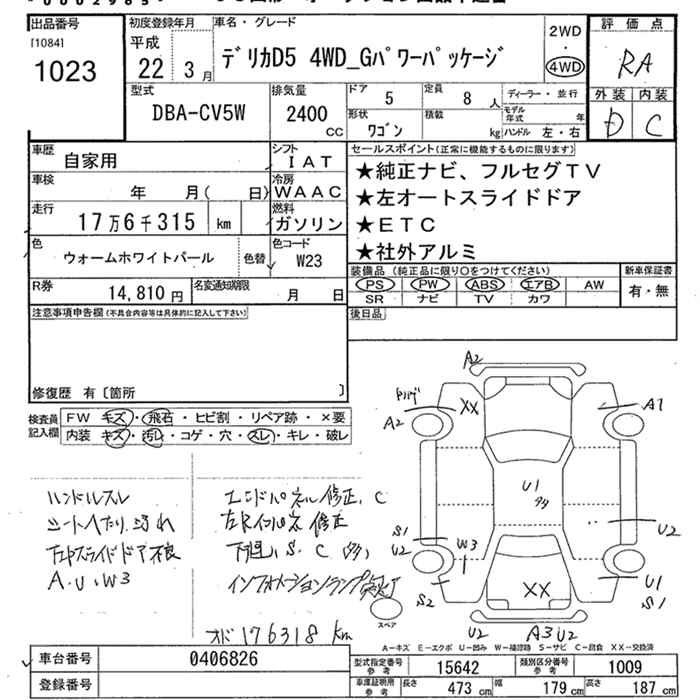 出品番号 初度登録年月 車名・グレード 2WD・4WD 評価点
[1084] 1023 平成 22年 3月 デリカD5 4WD_Gパワーパッケージ RA
型式 DBA-CV5W 排気量 2400 CC ドア 5 定員 8人 ディーラー・並行 外装 D 内装 C
形状 ワゴン 積載 kg モデル年式 年 ハンドル 左・右
車歴 自家用 シフト IAT セールスポイント(正常に機能するものに限ります)
車検 年 月( 日) 冷房 WAAC ★純正ナビ、フルセグTV
★左オートスライドドア
走行 17万6千315 km 燃料 ガソリン ★ETC
色 ウォームホワイトパール 色替 色コード W23 ★社外アルミ
装備品(純正品に限り○をつけてください) 新車保証書
PS PW ABS エアB AW 有・無
SR ナビ TV カワ
R券 14,810円 名変通知期限 月 日
注意事項申告欄(不具合内容等は具体的に記入して下さい) 後日品
修復歴 有〔箇所 〕
検査員記入欄 FW キズ・飛石・ヒビ割・リペア跡・×要
内装 キズ・汚レ・コゲ・穴・スレ・キレ・破レ
ハンドルスレ
シートヘたり汚れ
左スライドドア不良
A.U.W3
エンドパネル修正.C
左Rインパネ修正
下廻り S.C(多)
インフォメーションランプ点灯
オド176318km
A2
XX
A2
A1
U1
多
S1
U2
W3
S2
U2
U1
S1
XX
スペア
U2
A3 U2
A-キズ E-エクボ U-凹み W-補修跡 S-サビ C-腐食 XX-交換済
車台番号 0406826 型式指定番号 参考 15642 類別区分番号 参考 1009
登録番号 車庫証明用 参考 長さ 473cm 幅 179cm 高さ 187cm